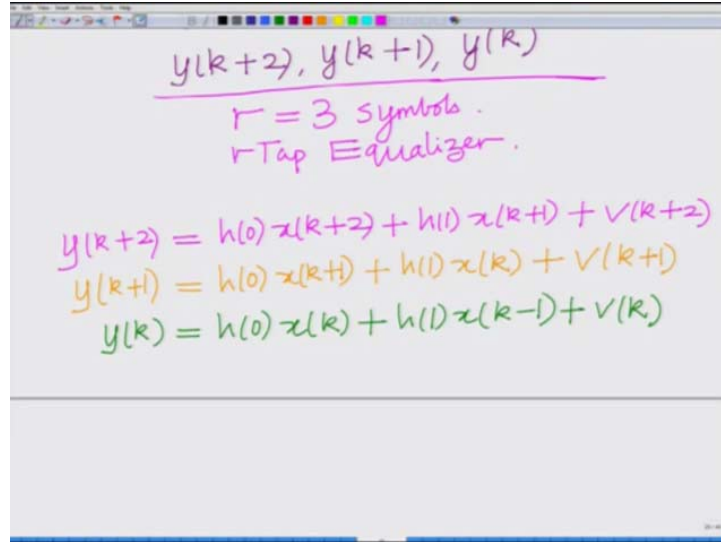 y(k+2), y(k+1), y(k)
r = 3 symbols.
r Tap Equalizer.
y(k+2) = h(0) x(k+2) + h(1) x(k+1) + v(k+2)
y(k+1) = h(0) x(k+1) + h(1) x(k) + v(k+1)
y(k) = h(0) x(k) + h(1) x(k-1) + v(k)